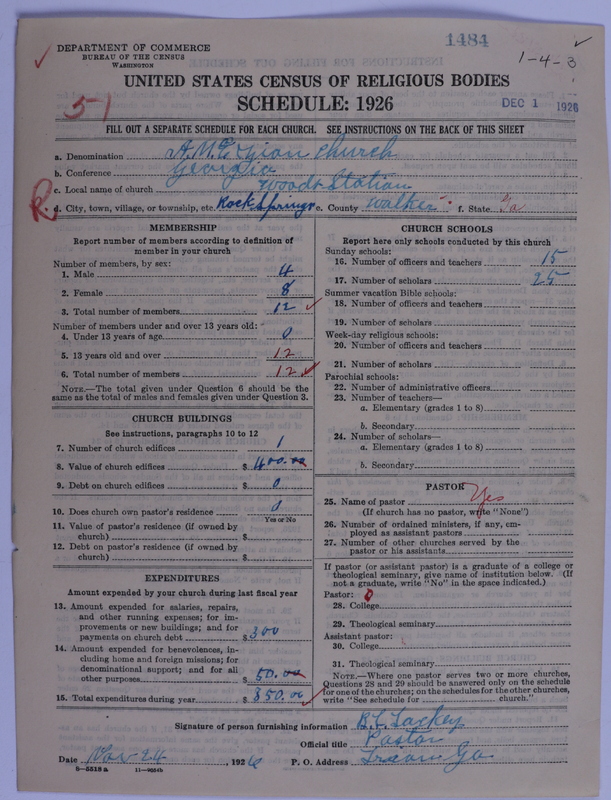 1484
1-4-3
DEPARTMENT OF COMMERCE
BUREAU OF THE CENSUS
WASHINGTON
UNITED STATES CENSUS OF RELIGIOUS BODIES
SCHEDULE: 1926
DEC 1 1926
51
FILL OUT A SEPARATE SCHEDULE FOR EACH CHURCH. SEE INSTRUCTIONS ON THE BACK OF THIS SHEET
a. Denomination A.M.E. Zion Church
b. Conference Georgia
c. Local name of church Woods Station
R. d. City, town, village, or township, etc. Rock Springs e. County Walker f. State Ga
MEMBERSHIP
Report number of members according to definition of
member in your church
Number of members, by sex:
1. Male 4
2. Female 8
3. Total number of members 12
Number of members under and over 13 years old:
4. Under 13 years of age 0
5. 13 years old and over 12
6. Total number of members 12
NOTE.—The total given under Question 6 should be the
same as the total of males and females given under Question 3.
CHURCH BUILDINGS
See instructions, paragraphs 10 to 12
7. Number of church edifices 1
8. Value of church edifices $ 400.00
9. Debt on church edifices $ 0
10. Does church own pastor's residence 0
Yes or No
11. Value of pastor's residence (if owned by
church) $
12. Debt on pastor's residence (if owned by
church) $
EXPENDITURES
Amount expended by your church during last fiscal year
13. Amount expended for salaries, repairs,
and other running expenses; for im-
provements or new buildings; and for
payments on church debt $ 300
14. Amount expended for benevolences, in-
cluding home and foreign missions; for
denominational support; and for all
other purposes $ 50.00
15. Total expenditures during year $ 350.00
CHURCH SCHOOLS
Report here only schools conducted by this church
Sunday schools:
16. Number of officers and teachers 15
17. Number of scholars 25
Summer vacation Bible schools:
18. Number of officers and teachers
19. Number of scholars
Week-day religious schools:
20. Number of officers and teachers
21. Number of scholars
Parochial schools:
22. Number of administrative officers
23. Number of teachers—
a. Elementary (grades 1 to 8)
b. Secondary
24. Number of scholars—
a. Elementary (grades 1 to 8)
b. Secondary
PASTOR
25. Name of pastor Yes
(If church has no pastor, write "None")
26. Number of ordained ministers, if any, em-
ployed as assistant pastors
27. Number of other churches served by the
pastor or his assistants
If pastor (or assistant pastor) is a graduate of a college or
theological seminary, give name of institution below. (If
not a graduate, write "No" in the space indicated.)
Pastor: 0
28. College
29. Theological seminary
Assistant pastor:
30. College
31. Theological seminary
NOTE.—Where one pastor serves two or more churches,
Questions 28 and 29 should be answered only on the schedule
for one of the churches; on the schedules for the other churches,
write "See schedule for church."
Signature of person furnishing information
Official title Pastor
Date Nov 24, 1926 P. O. Address Ga
8-5518 a 11-9024b